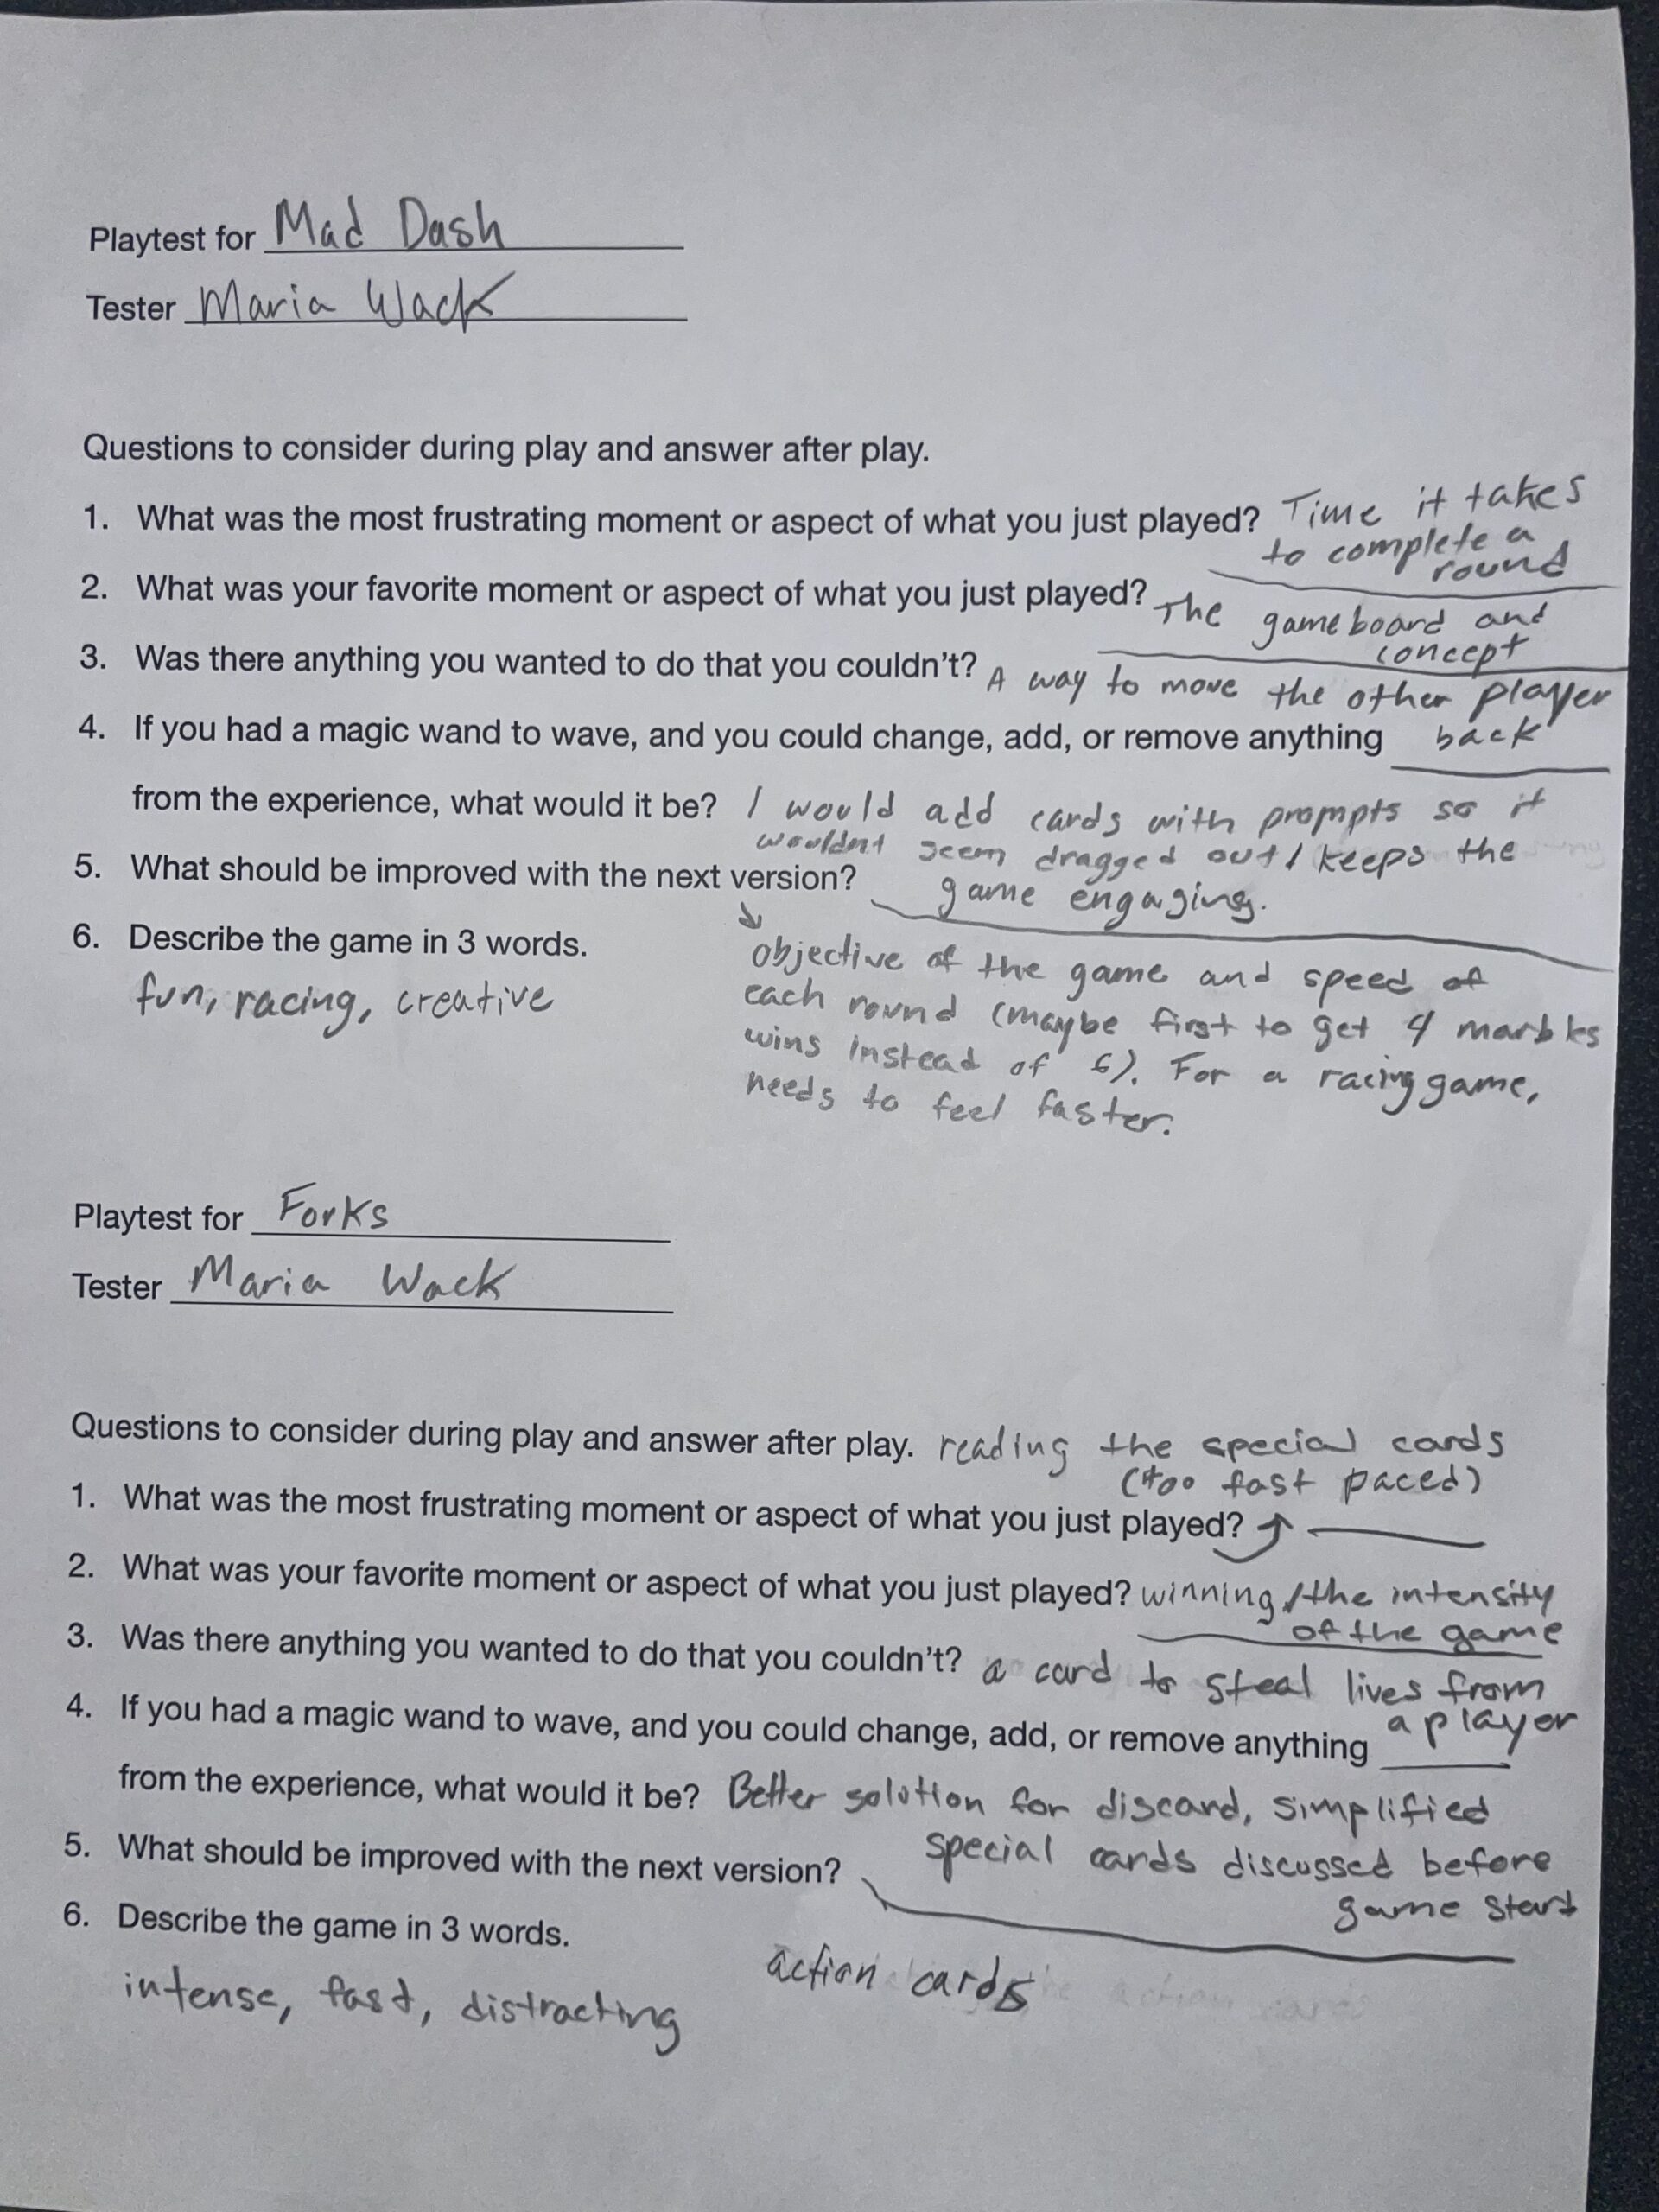 Playtest for Mad Dash
Tester Maria Wack
Questions to consider during play and answer after play.
1. What was the most frustrating moment or aspect of what you just played? Time it takes
to complete a
round
2. What was your favorite moment or aspect of what you just played? The gameboard and
concept
3. Was there anything you wanted to do that you couldn't? A way to move the other player
4. If you had a magic wand to wave, and you could change, add, or remove anything back
from the experience, what would it be? I would add cards with prompts so it
wouldnt seem dragged out / keeps the
5. What should be improved with the next version? game engaging.
6. Describe the game in 3 words.
objective of the game and speed of
fun, racing, creative
each round (maybe first to get 4 marbles
wins instead of 6). For a racing game,
needs to feel faster.
Playtest for Forks
Tester Maria Wack
Questions to consider during play and answer after play. reading the special cards
(too fast paced)
1. What was the most frustrating moment or aspect of what you just played?
2. What was your favorite moment or aspect of what you just played? winning / the intensity
of the game
3. Was there anything you wanted to do that you couldn't? a card to steal lives from
a player
4. If you had a magic wand to wave, and you could change, add, or remove anything
from the experience, what would it be? Better solution for discard, simplified
special cards discussed before
5. What should be improved with the next version?
game start
6. Describe the game in 3 words.
action cards
intense, fast, distracting